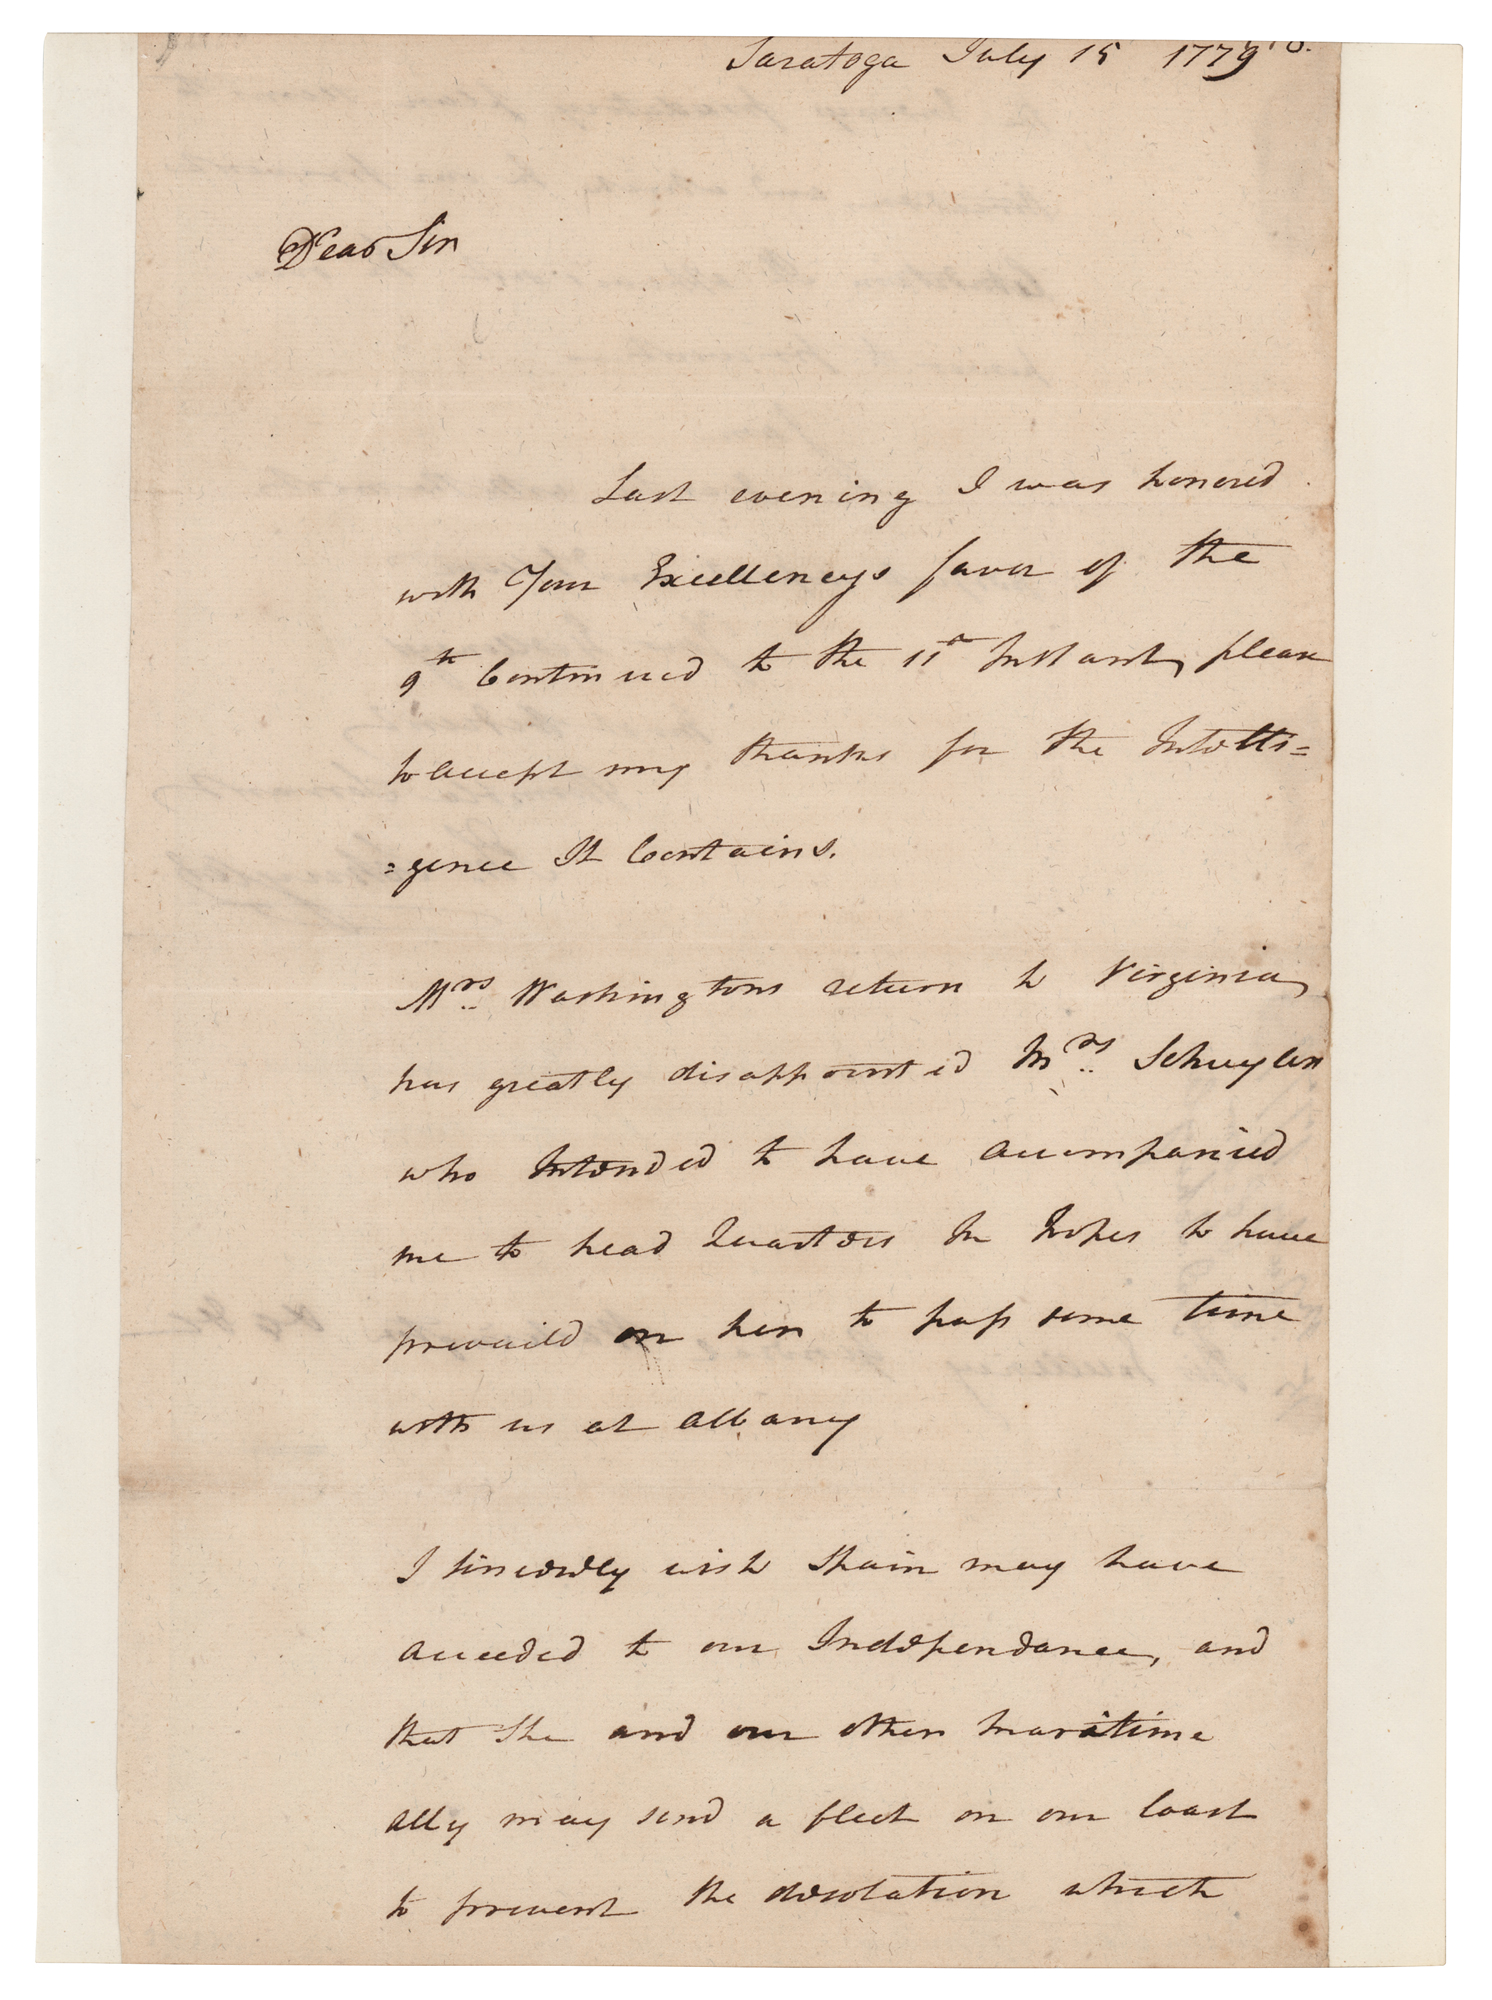 Saratoga July 15 1779
Dear Sir
Last evening I was honored
with Your Excellencys favor of the
9th Continued to the 11th Instant, please
to accept my thanks for the Intelli=
=gence It Contains.
Mrs. Washingtons return to Virginia,
has greatly disappointed Mrs. Schuyler
who Intended to have accompanied
me to head Quarters In hopes to have
prevaild on her to pass some time
with us at Albany
I sincerely wish Spain may have
acceeded to our Independance, and
that She and our other maratime
ally may send a fleet on our Coast
to prevent the desolation which